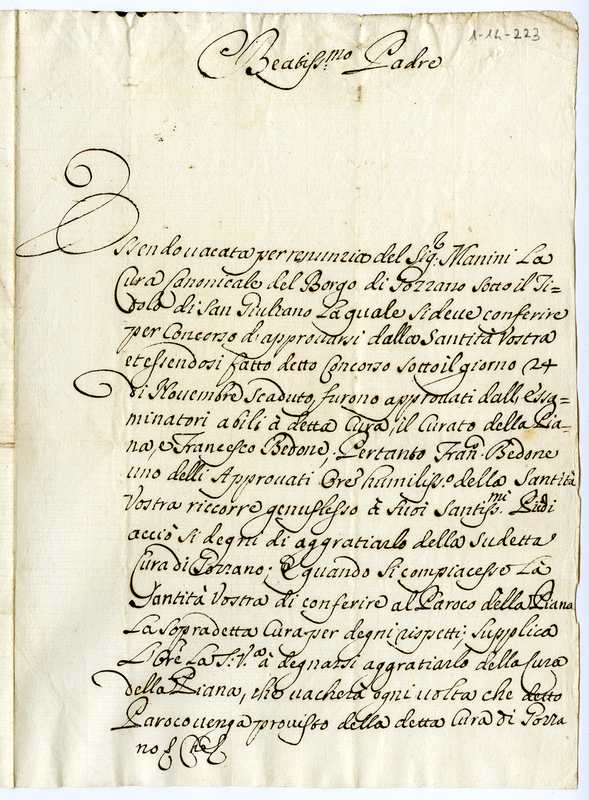 1-14-223
Beatiss.mo Padre
Essendo vacata per renunzia del Sig.r Manini La
Cura Canonicale del Borgo di Pozzano sotto il Ti=
tolo di San Giuliano La quale si deve conferire
per Concorso d'approvarsi dalla Santità Vostra
et essendosi fatto detto Concorso sotto il giorno 24
di Novembre Scaduto, furono approvati dalli essa=
minatori abili à detta Cura, il Curato della Pia=
na, e Francesco Bedone; Pertanto Fran.o Bedone
uno delli Approvati Ore humiliss.o della Santità
Vostra riccorre genuflesso à suoi Santiss.mi Piedi
acciò si degni di aggratiarlo della Sudetta
Cura di Pozzano; E quando si compiacesse La
Santità Vostra di conferire al Paroco della Piana
La sopradetta Cura per degni rispetti; supplica
L'Ore La S.V.a à degnarsi aggratiarlo della Cura
della Piana, che vacherà ogni volta che detto
Paroco venga provisto della detta Cura di Pozza
no